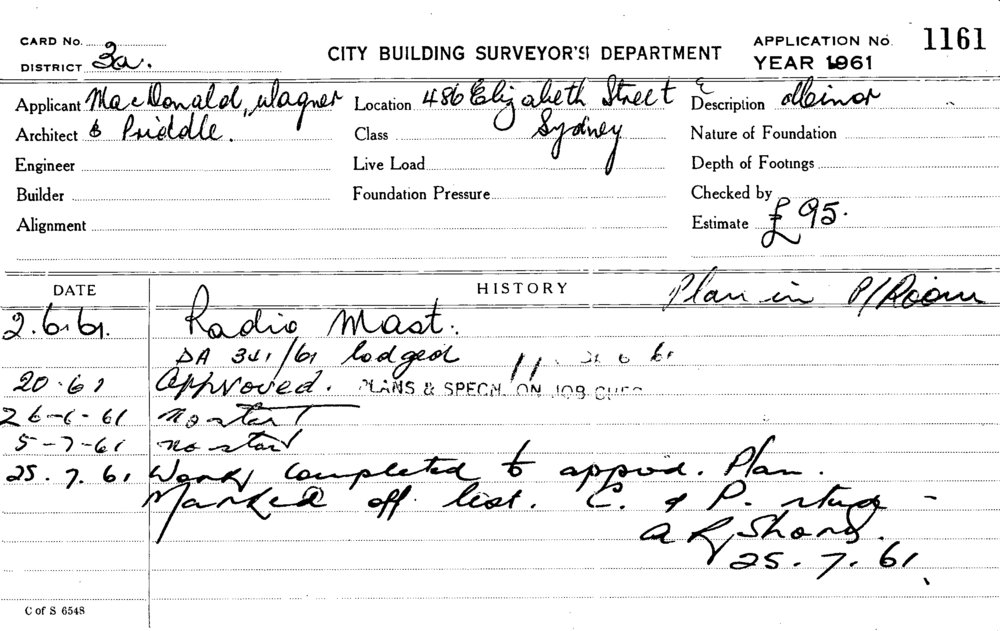 CARD No.
DISTRICT 2a.
CITY BUILDING SURVEYOR'S DEPARTMENT
APPLICATION No. 1161
YEAR 1961
Applicant MacDonald, Wagner Location 486 Elizabeth Street Description Minor
Architect & Priddle. Class Sydney Nature of Foundation
Engineer Live Load Depth of Footings
Builder Foundation Pressure Checked by
Alignment Estimate £95.
DATE HISTORY Plan in P/Room
2.6.61. Radio Mast.
DA 341/61 lodged 6 61
20.61 Approved. PLANS & SPECN. ON JOB
26-6-61 no start
5-7-61 no start
25.7.61 Work completed to approd. Plan.
Marked off list. C. & P.
25.7.61
C of S 6548